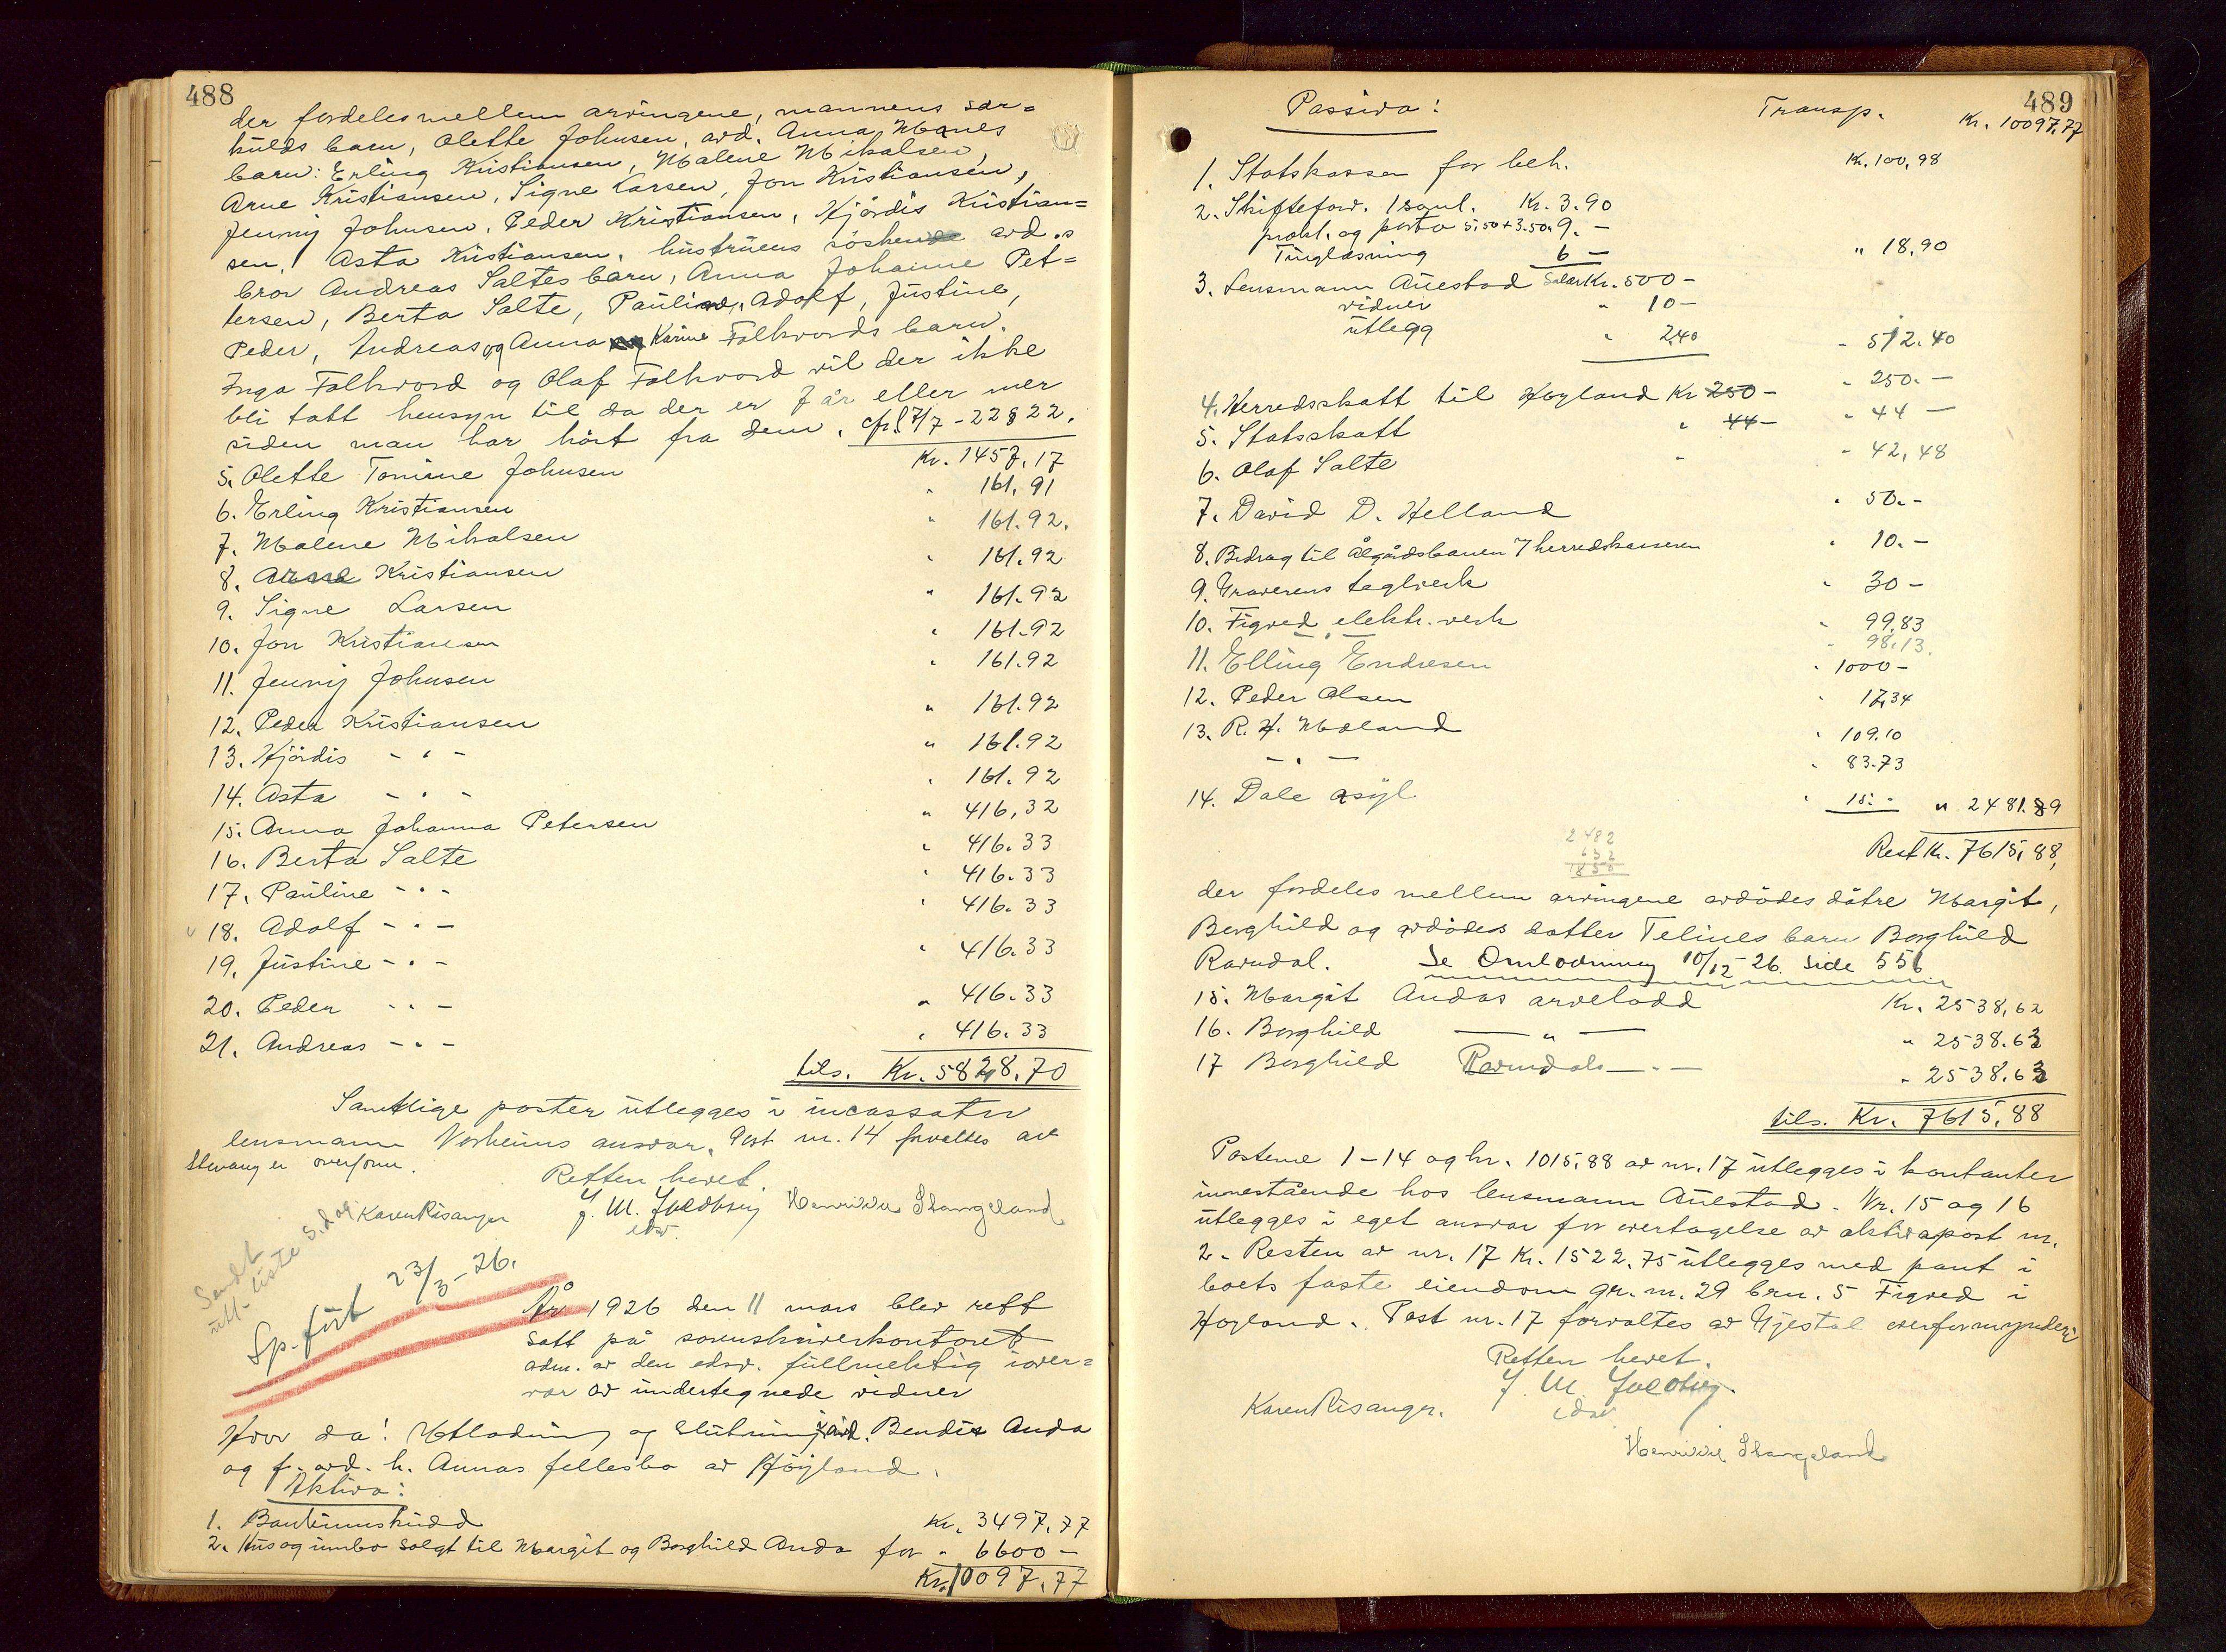 488
der fordeles mellem arvingene, mannens sær=
kulds barn, Olette Johnsen, avd. Anna Manes
barn: Erling Kristiansen, Malene Mikalsen,
Arne Kristiansen, Signe Larsen, Jon Kristiansen,
Jenny Johnsen, Peder Kristiansen, Hjördis Kristian=
sen, Asta Kristiansen, hustruens söskende avd.s
bror Andreas Saltes barn, Anna Johanne Pet=
tersen, Berta Salte, Pauline, Adolf, Justine,
Peder, Andreas og Anna Karine Folkvords barn.
Inga Folkvord og Olaf Folkvord vil der ikke
bli tatt hensyn til da der er 7 år eller mer
siden man har hört fra dem, cfr. l 7/7-22 § 22.
5. Olette Tomine Johnsen Kr. 1457.17
6. Erling Kristiansen " 161.91
7. Malene Mikalsen " 161.92.
8. Arne Kristiansen " 161.92
9. Signe Larsen " 161.92
10. Jon Kristiansen " 161.92
11. Jenny Johnsen " 161.92
12. Peder Kristiansen " 161.92
13. Hjördis - " - " 161.92
14. Asta - " - " 161.92
15. Anna Johanna Petersen " 416,32
16. Berta Salte " 416.33
17. Pauline - " - " 416.33
18. Adolf - " - " 416.33
19. Justine - " - " 416.33
20. Peder - " - " 416.33
21. Andreas - " - " 416.33
tils. Kr. 5828.70
Samtlige poster utlegges i incassator
lensmann Norheims ansvar. Post nr. 14 forvaltes av
Stavang er overform.
Retten hevet.
Karen Risanger J. M. Henrikke Stangeland
edsv.
Sendt
utl-liste s.dag
Sp. fört 23/3-26.
År 1926 den 11 mars blev rett
satt på sorenskriverkontoret
adm. av den edsv. fullmektig iover=
vær av undertegnede vidner
Hvor da: Utlodning og slutning i avd. Bendix Anda
og f. avd. h. Annas fellesbo av Höyland.
Aktiva:
1. Bankinnskudd Kr. 3497.77
2. Hus og innbo solgt til Margit og Borghild Anda for " 6600 -
Kr. 10097.77
489
Passiva: Transp. Kr. 10097.77
1. Statskassen for beh. Kr. 100,98
2. Skifteford. 1 saml. Kr. 3.90
prokl. og porto 5.50+3.50 " 9. -
Tinglæsning 6 - " 18,90
3. Lensmann Auestad Salær Kr. 500 -
vidner " 10 -
utlegg " 2.40 - 512.40
4. Herredsskatt til Høyland Kr 250 - " 250. -
5. Statsskatt " 44 - " 44 -
6. Olaf Salte " - 42,48
7. David D. Helland " 50. -
8. Bidrag til Ålgårdsbanen / herredskasseren " 10. -
9. Graverens teglverk " 30 -
10. Figved elektr. verk " 99,83
- " - " 98.13.
11. Elling Endresen " 1000 -
12. Peder Olsen " 17,34
13. R. H. Mæland " 109.10
- " - " 83.73
14. Dale asyl " 15. - " 2481.89
Rest Kr. 7615,88,
2482
632
1850
der fordeles mellem arvingene avdödes dötre Margit,
Borghild og avdödes datter Telines barn Borghild
Ravndal. Se Omlodning 10/12-26. side 556
15. Margit Andas arvelodd Kr. 2538,62
16. Borghild — " — " 2538.63
17 Borghild Ravndals — " — " 2538.63
tils. Kr. 7615,88
Postene 1-14 og kr. 1015,88 av nr. 17 utlegges i kontanter
innestående hos lensmann Auestad. Nr. 15 og 16
utlegges i eget ansvar for overtagelse av aktivapost nr.
2. Resten av nr. 17 Kr. 1522.75 utlegges med pant i
boets faste eiendom gr. nr. 29 brn. 5 Figved i
Høyland. Post nr. 17 forvaltes av Gjestal overformynderi
Retten hevet.
J. M.
Karen Risanger. edsv
Henrikke Stangeland